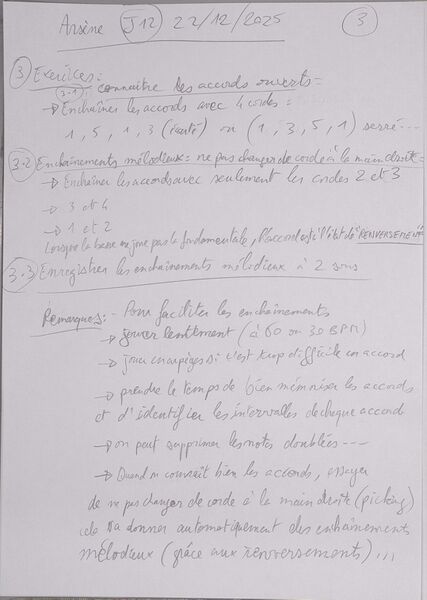 Arsène J12 22/12/2025 3
3 Exercices:
3-1 connaître les accords ouverts=
→ Enchaîner les accords avec 4 cordes =
1, 5, 1, 3 (écarté) ou (1, 3, 5, 1) serré...
3-2 Enchaînements mélodieux= ne pas changer de corde à la main droite=
→ Enchaîner les accords avec seulement les cordes 2 et 3
→ 3 et 4
→ 1 et 2
Lorsque la basse ne joue pas la fondamentale, l'accord est à l'état de "RENVERSEMENT"
3-3 Enregistrer les enchaînements mélodieux à 2 sons
Remarques: - Pour faciliter les enchaînements
→ jouer lentement (à 60 ou 30 BPM)
→ jouer en arpèges si c'est trop difficile en accord
→ prendre le temps de bien mémoriser les accords
et d'identifier les intervalles de chaque accord
→ on peut supprimer les notes doublées ---
→ Quand on connaît bien les accords, essayer
de ne pas changer de corde à la main droite (picking)
cela va donner automatiquement des enchaînements
mélodieux (grâce aux renversements)...